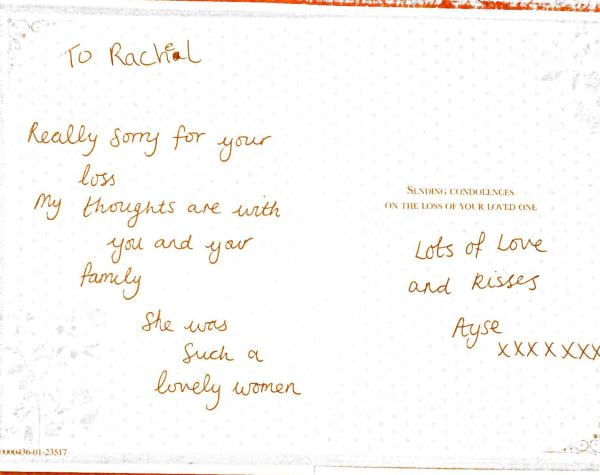 To Rachel
Really sorry for your
loss
My thoughts are with
you and your
family
She was
such a
lovely women
0000436-01-23517
SENDING CONDOLENCES
ON THE LOSS OF YOUR LOVED ONE
Lots of Love
and kisses
Ayse
xxxxxxx